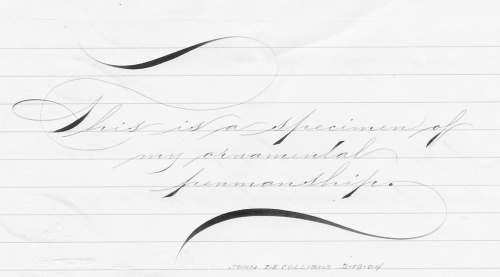 This is a specimen of
my ornamental
penmanship.
JOHN DE COLLIBUS